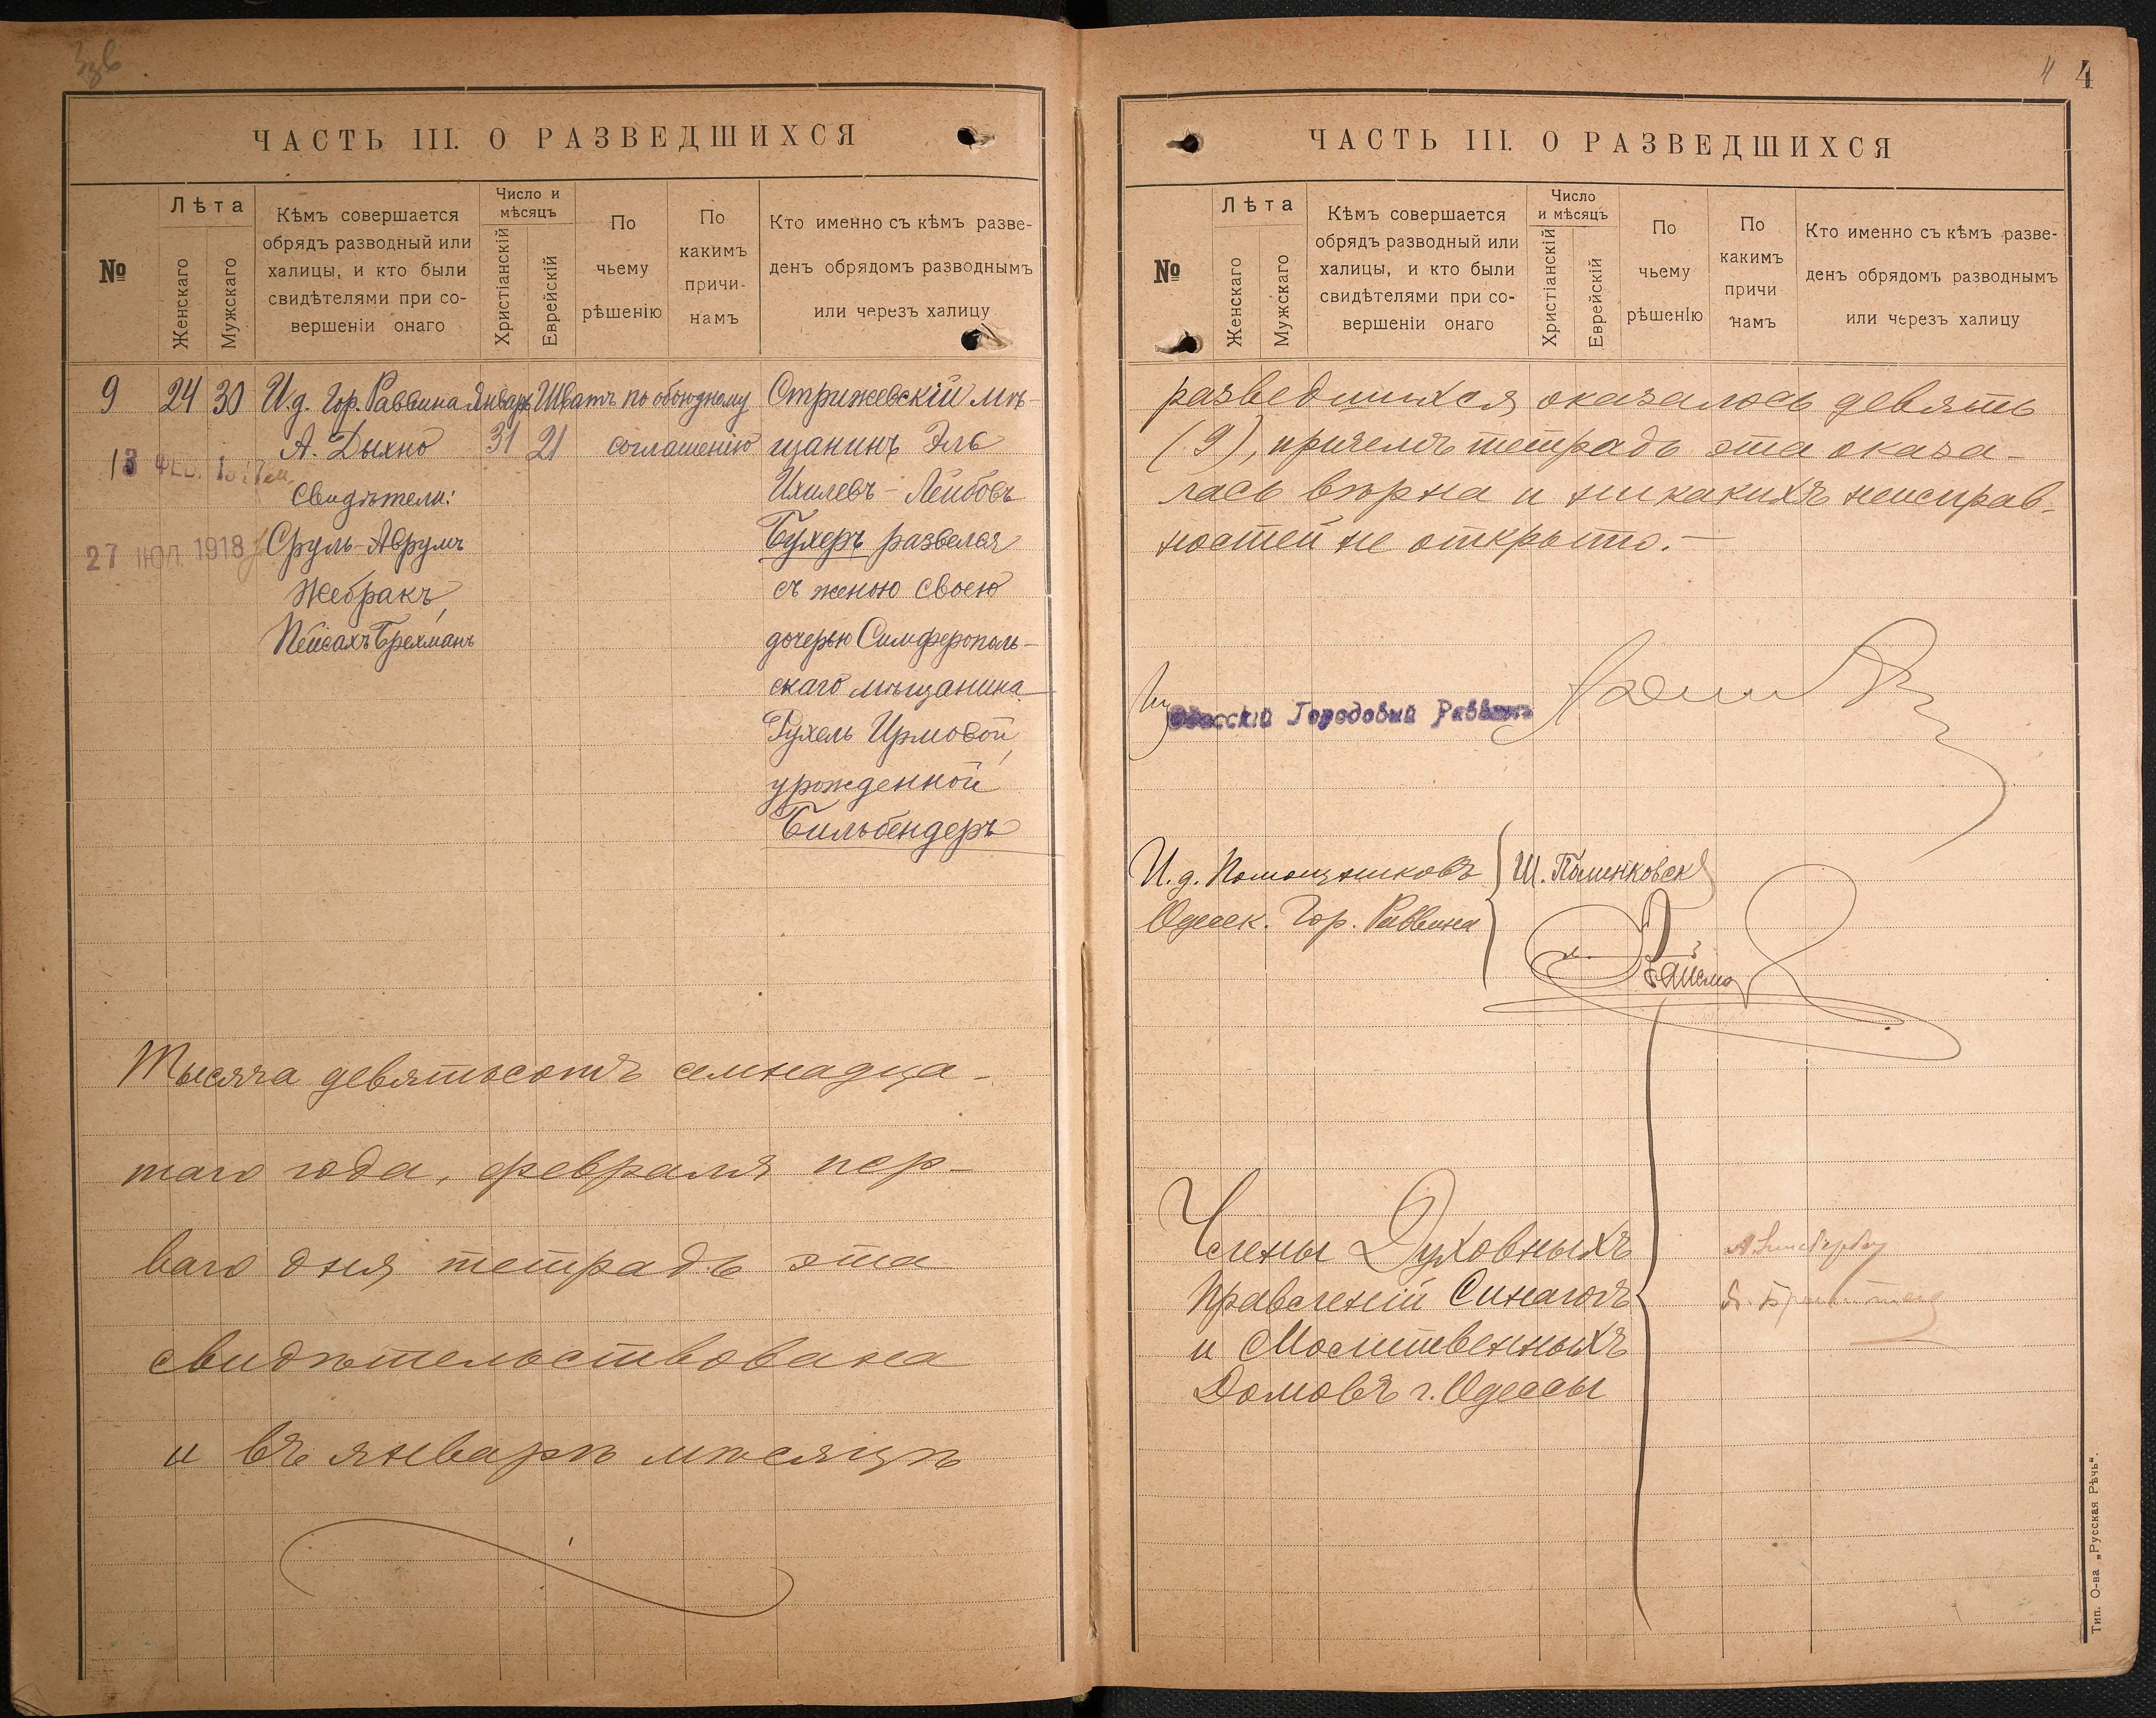 ЧАСТЬ III. О РАЗВЕДШИХСЯ
№
Лѣта
Женскаго
Мужскаго
Кѣмъ совершается
обрядъ разводный или
халицы, и кто были
свидѣтелями при со-
вершеніи онаго
Число и
мѣсяцъ
Христіанскій
Еврейскій
По
чьему
рѣшенію
По
какимъ
причи-
намъ
Кто именно съ кѣмъ разве-
денъ обрядомъ разводнымъ
или черезъ халицу
9 24 30 И.д. Гор. Раввина Январь Шватъ по обоюдному Стрижевскій мѣ-
А. Дыхно 31 21 соглашенію щанинъ Эль
13 ФЕВ.
Свидѣтели: Ихилевъ-Лейбовъ
27 ИЮЛ 1918 Сруль-Аврумъ Бухеръ развелся
Жебракъ, съ женою своею
Пейсахъ Брехманъ дочерью Симферополь-
скаго мѣщанина
Рухель Ирмовой,
урожденной
Бильбендеръ
Тысяча девятьсотъ семнадца-
таго года, февраля пер-
ваго дня тетрадь эта
свидѣтельствована
и въ январѣ мѣсяцѣ
4 4
ЧАСТЬ III. О РАЗВЕДШИХСЯ
№
Лѣта
Женскаго
Мужскаго
Кѣмъ совершается
обрядъ разводный или
халицы, и кто были
свидѣтелями при со-
вершеніи онаго
Число
и мѣсяцъ
Христіанскій
Еврейскій
По
чьему
рѣшенію
По
какимъ
причи
намъ
Кто именно съ кѣмъ разве-
денъ обрядомъ разводнымъ
или черезъ халицу
разведшихся оказалось девять
(9), причемъ тетрадь эта оказа-
лась вѣрна и никакихъ неисправ-
ностей не открыто.—
Одесскій Городовый Раввинъ
И.д. Помощниковъ
Одесск. Гор. Раввина
Члены Духовныхъ
Правленій Синагогъ
и Молитвенныхъ
Домовъ г. Одессы
Тип. О-ва „Русская Рѣчь“.